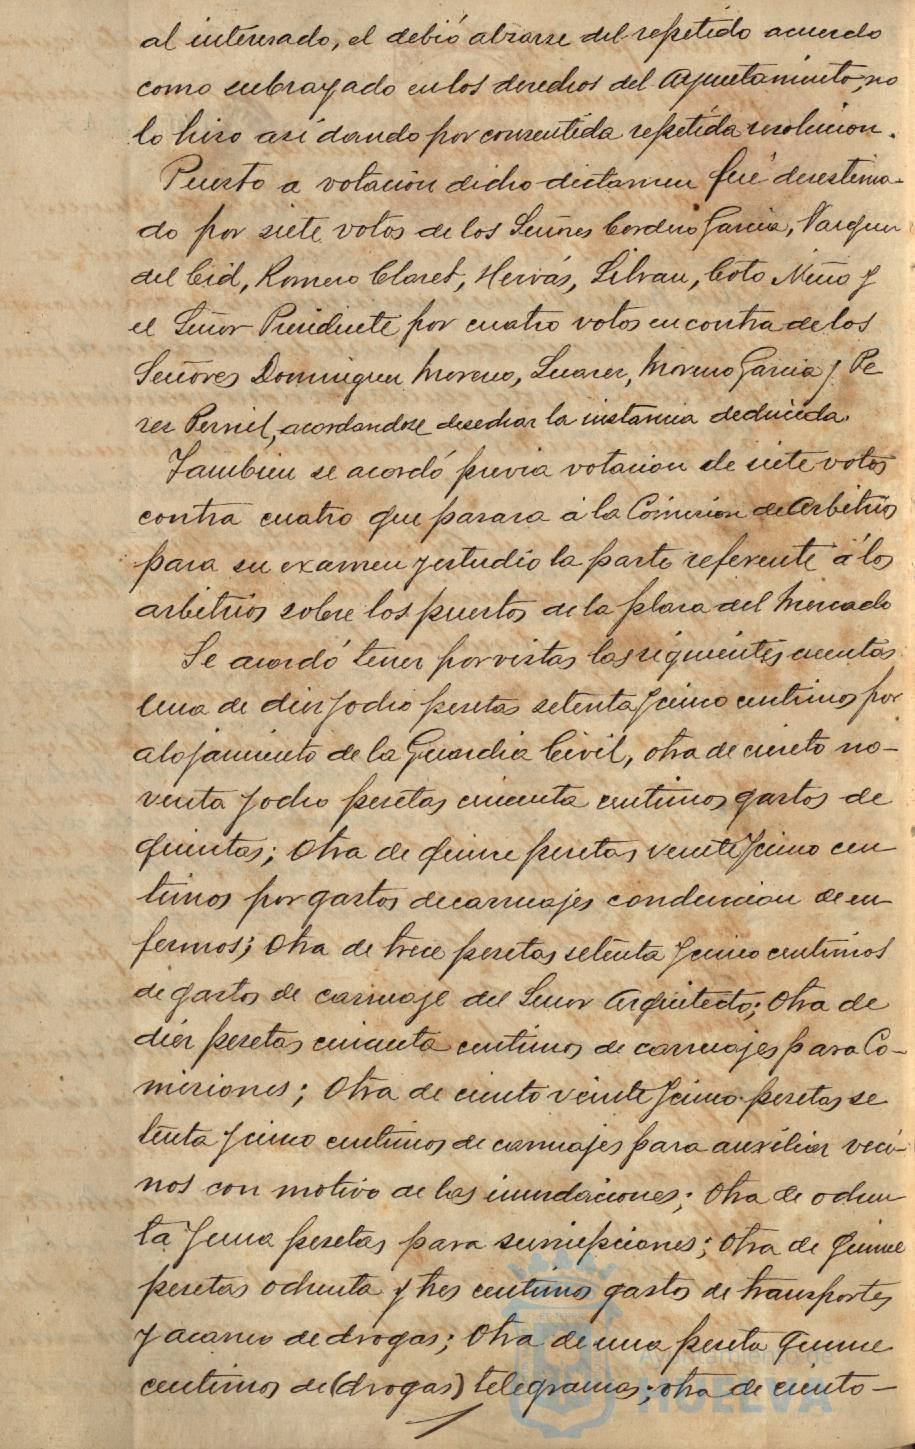 al interesado, el debió alzarse del repetido acuerdo
como subrayado en los derechos del Ayuntamiento, no
lo hizo así dando por consentida repetida resolucion.
Puesto a votación dicho dictamen fué desestima-
do por siete votos de los Señores Cordero Garcia, Vazquez
del Cid, Romero Claret, Hervás, Silvan, Coto Niño y
el Señor Presidente por cuatro votos en contra de los
Señores Dominguez Moreno, Suarez, Moreno Garcia y Pe
rez Pernil, acordandose desechar la instancia deducida.
Tambien se acordó previa votacion de siete votos
contra cuatro que pasara á la Comision de Arbitrios
para su examen y estudio la parte referente á los
arbitrios sobre los puestos de la plaza del Mercado
Se acordó tener por vistas las siguientes cuentas
Una de diez y ocho pesetas setenta y cinco centimos por
alojamiento de la Guardia Civil, otra de ciento no-
venta y ocho pesetas cincuenta centimos gastos de
quintas; Otra de quince pesetas veinte y cinco cen
timos por gastos de carruajes conduccion de en
fermos; Otra de trece pesetas setenta y cinco centimos
de gastos de carruaje del Señor Arquitecto; Otra de
diez pesetas cincuenta centimos de carruajes para Co-
misiones; Otra de ciento veinte y cinco pesetas se
tenta y cinco centimos de carruajes para auxiliar veci-
nos con motivo de las inundaciones; Otra de ochen
ta y una pesetas para suscripciones; Otra de quince
pesetas ochenta y tres centimos gastos de transportes
y acarreo de drogas; Otra de una peseta quince
centimos de (drogas) telegramas; otra de ciento-
Ayuntamiento de
HUELVA